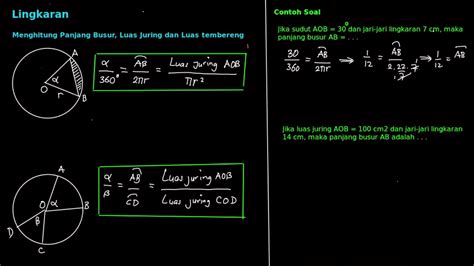 Lingkaran
Menghitung Panjang Busur, Luas Juring dan Luas tembereng
A
O
α
r
B
α/360° = AB/2πr = Luas juring AOB/πr²
A
O
α
β
B
D
C
α/β = AB/CD = Luas juring AOB/Luas juring COD
Contoh Soal
Jika sudut AOB = 30° dan jari-jari lingkaran 7 cm, maka
panjang busur AB = . . .
30/360 = AB/2πr ⇒ 1/12 = AB/2.22/7.7 ⇒ 1/12 = AB
Jika luas juring AOB = 100 cm2 dan jari-jari lingkaran
14 cm, maka panjang busur AB adalah . . .